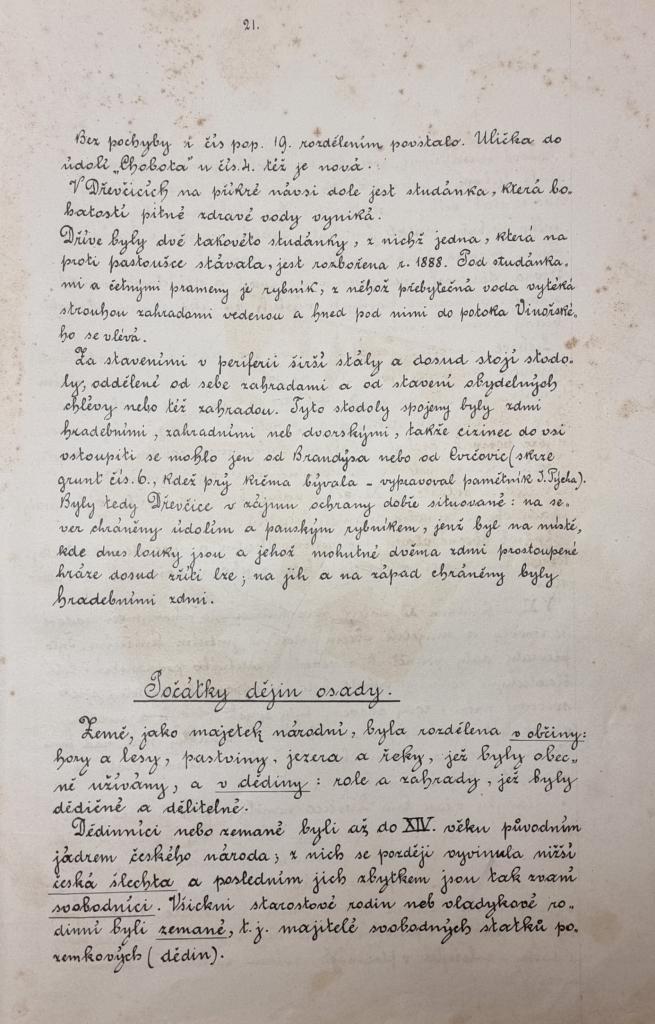 21.
Bez pochyby i čís pop. 19. rozdělením povstalo. Ulička do
údolí „Chobota" u čís. 4. též je nová.
V Dřevčicích na příkré návsi dole jest studánka, která bo„
hatostí pitné zdravé vody vyniká.
Dříve byly dvě takovéto studánky, z nichž jedna, která na
proti pastoušce stávala, jest rozbořena r. 1888. Pod studánka„
mi a četnými prameny je rybník, z něhož přebytečná voda vytéká
strouhou zahradami vedenou a hned pod nimi do potoka Vinořské„
ho se vlévá.
Za staveními v periferii širší stály a dosud stojí stodo„
ly, oddělené od sebe zahradami a od stavení obydelných
chlévy nebo též zahradou. Tyto stodoly spojeny byly zdmi
hradebními, zahradními neb dvorskými, takže cizinec do vsi
vstoupiti se mohlo jen od Brandýsa nebo od Cvrčovic (skrze
grunt čís. 6., kdež prý krčma bývala – vypravoval pamětník J. Pýcha).
Byly tedy Dřevčice v zájmu ochrany dobře situované: na se„
ver chráněny údolím a panským rybníkem, jenž byl na místě,
kde dnes louky jsou a jehož mohutné dvěma zdmi prostoupené
hráze dosud zříti lze; na jih a na západ chráněny byly
hradebními zdmi.
Počátky dějin osady.
Země, jako majetek národní, byla rozdělena v občiny:
hory a lesy, pastviny, jezera a řeky, jež byly obec„
ně užívány, a v dědiny: role a zahrady, jež byly
dědičné a dělitelné.
Dědinníci nebo zemané byli až do XIV. věku původním
jádrem českého národa; z nich se později vyvinula nižší
česká šlechta a posledním jich zbytkem jsou tak zvaní
svobodníci. Všickni starostové rodin neb vladykové ro„
dinní byli zemané, t. j. majitelé svobodných statků po„
zemkových (dědin).